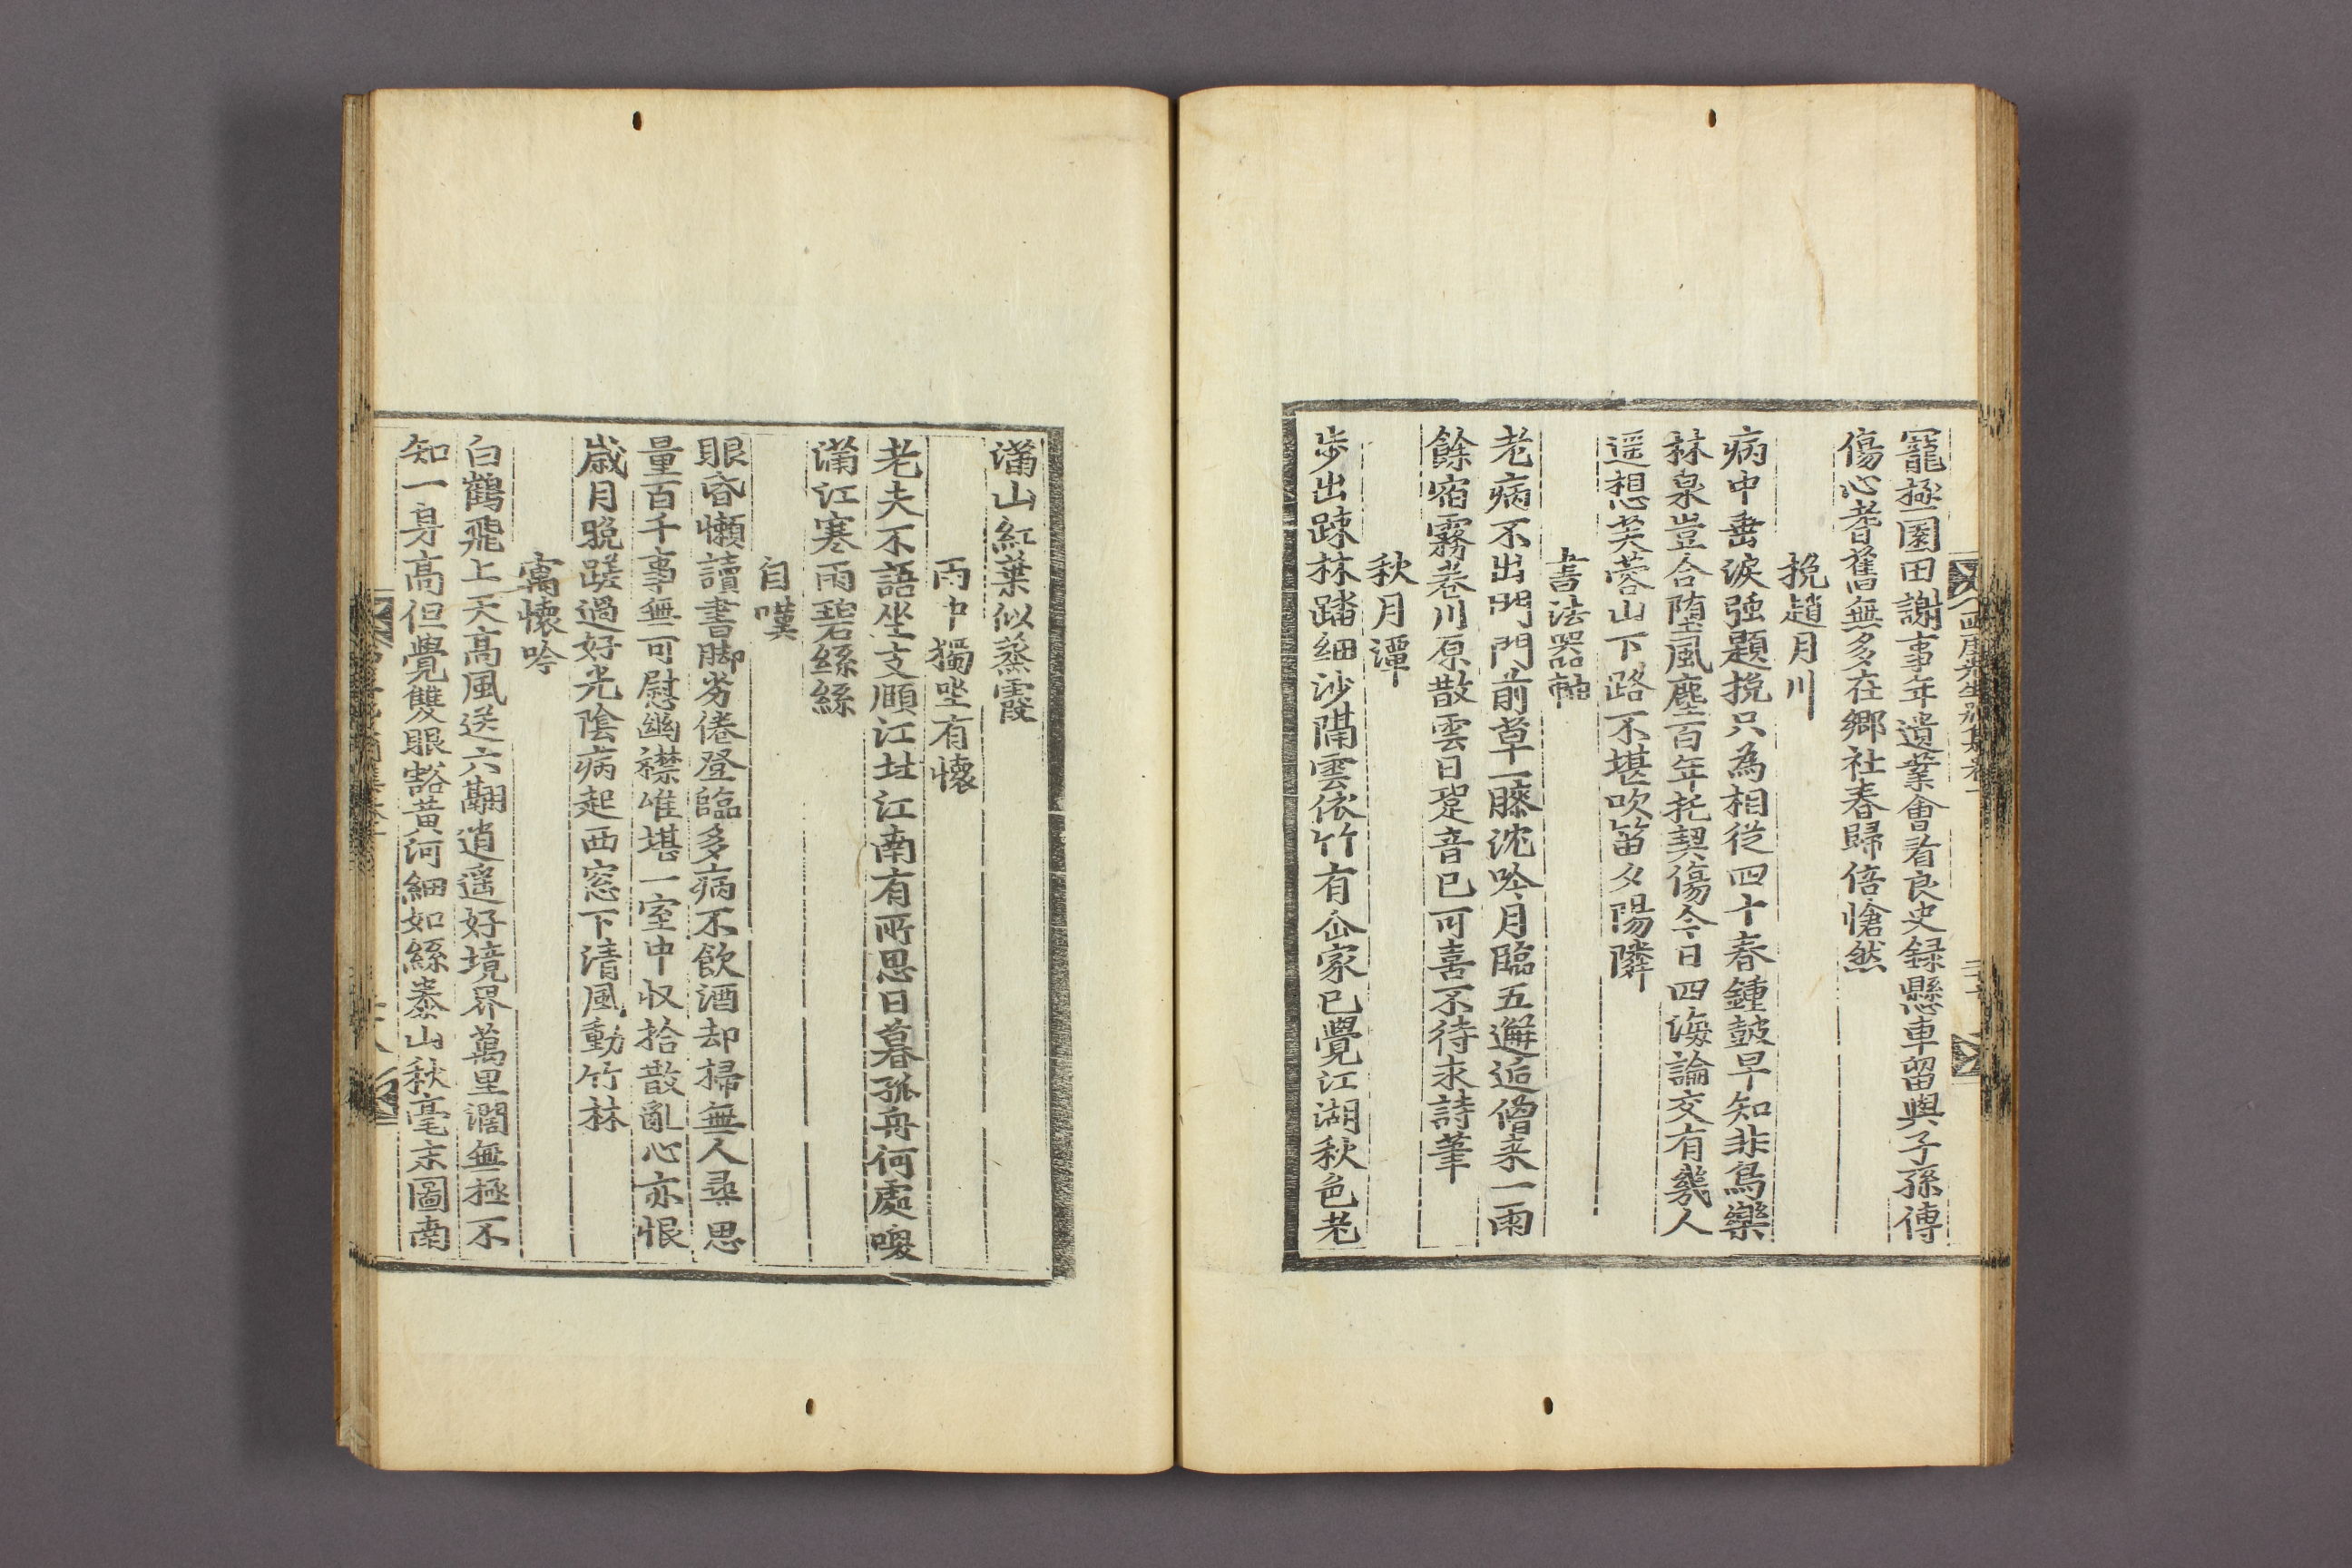 西厓先生別集卷一
寵極園田謝事年遺業會看良史録懸車留與子孫傳
傷心耆舊無多在鄉社春歸倍愴然
挽趙月川
病中垂淚強題挽只為相從四十春鍾皷早知非鳥樂
林泉豈合墮風塵百年托契傷今日四海論交有幾人
遥想芙蓉山下路不堪吹笛夕陽隣
書法噐軸
老病不出門門前草一膝沈吟月臨五邂逅僧来一雨
餘宿霧卷川原散雲日跫音已可喜不待求詩筆
秋月潭
步出踈林踏細沙隔雲依竹有仚家已覺江湖秋色老
滿山紅葉似蒸霞
雨中獨坐有懷
老夫不語坐支頤江北江南有所思日暮孤舟何處嗄
滿江寒雨碧絲絲
自嘆
眼昏懶讀書脚劣倦登臨多病不飲酒却掃無人尋思
量百千事無可慰幽襟惟堪一室中収拾散亂心亦恨
歲月晚蹉過好光陰病起西窓下清風動竹林
寓懷吟
白鶴飛上天高風送六翮逍遥好境界萬里濶無極不
知一身高但覺雙眼豁黄河細如絲泰山秋毫末圖南